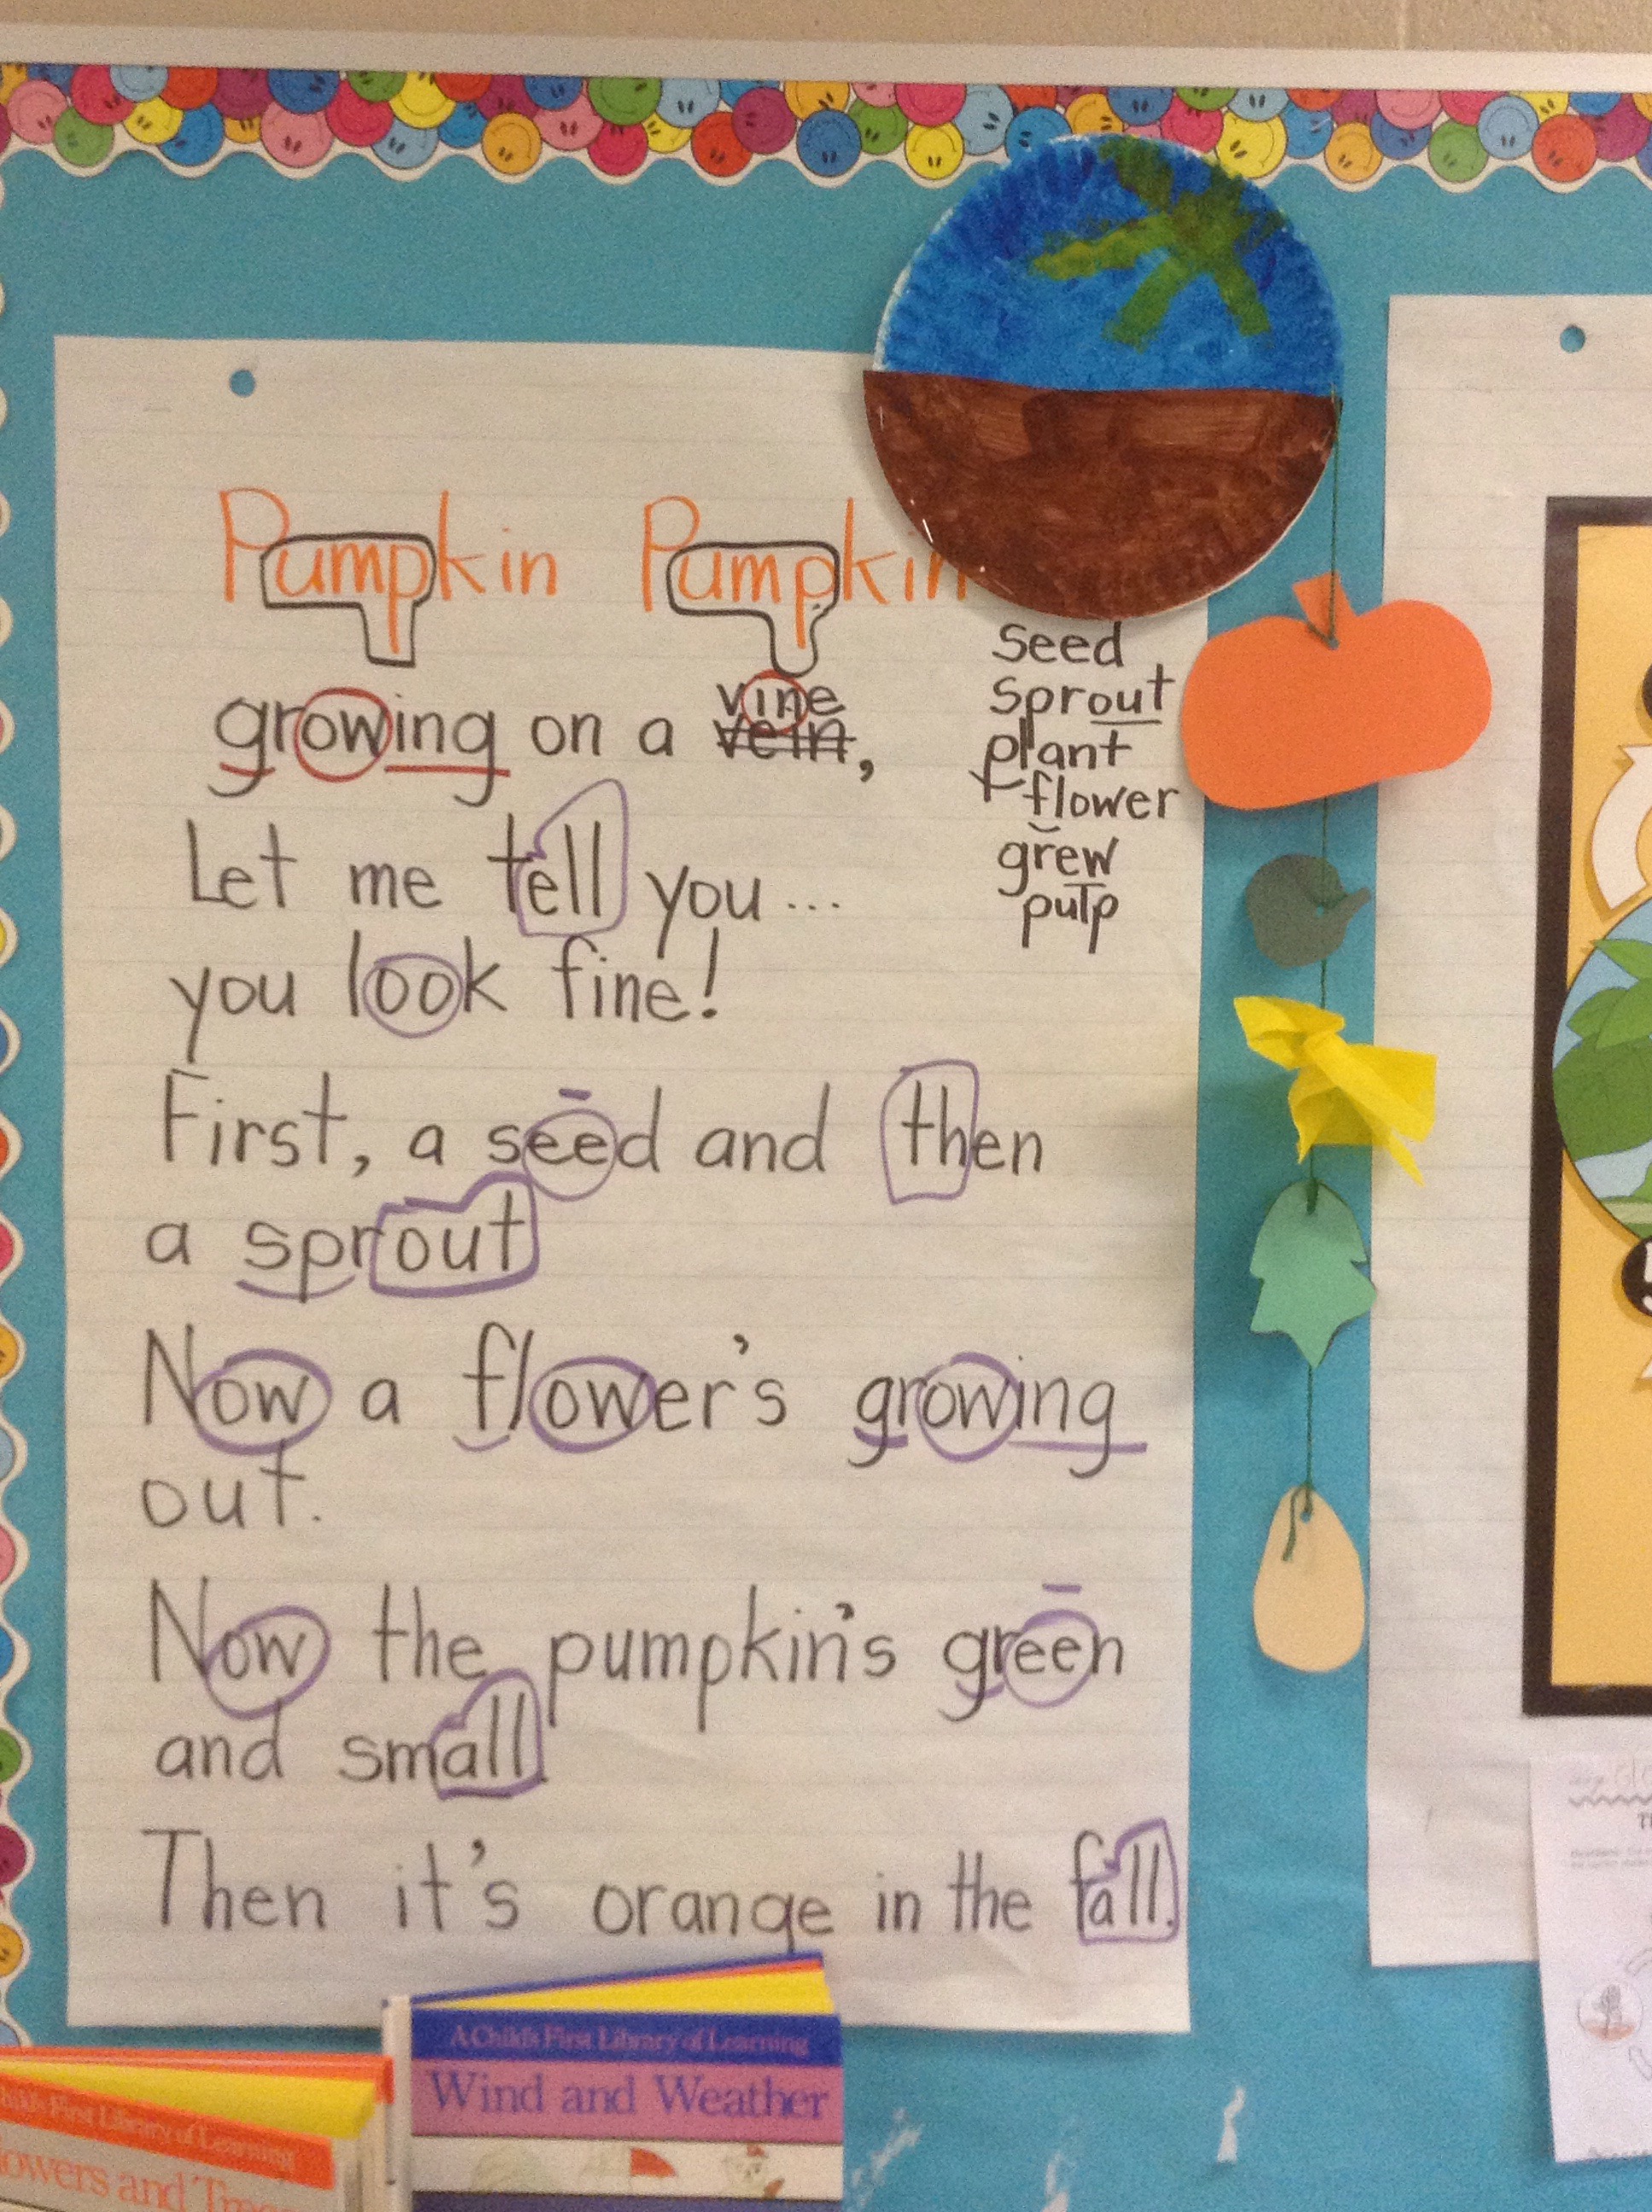 Pumpkin Pumpkin
growing on a vine vein,
Let me tell you...
you look fine!
First, a seed and then
a sprout
Now a flower's growing
out.
Now the pumpkin's green
and small.
Then it's orange in the fall.
seed
sprout
plant
flower
grew
pulp
A Child's First Library of Learning
Wind and Weather
First Library of Learning
and